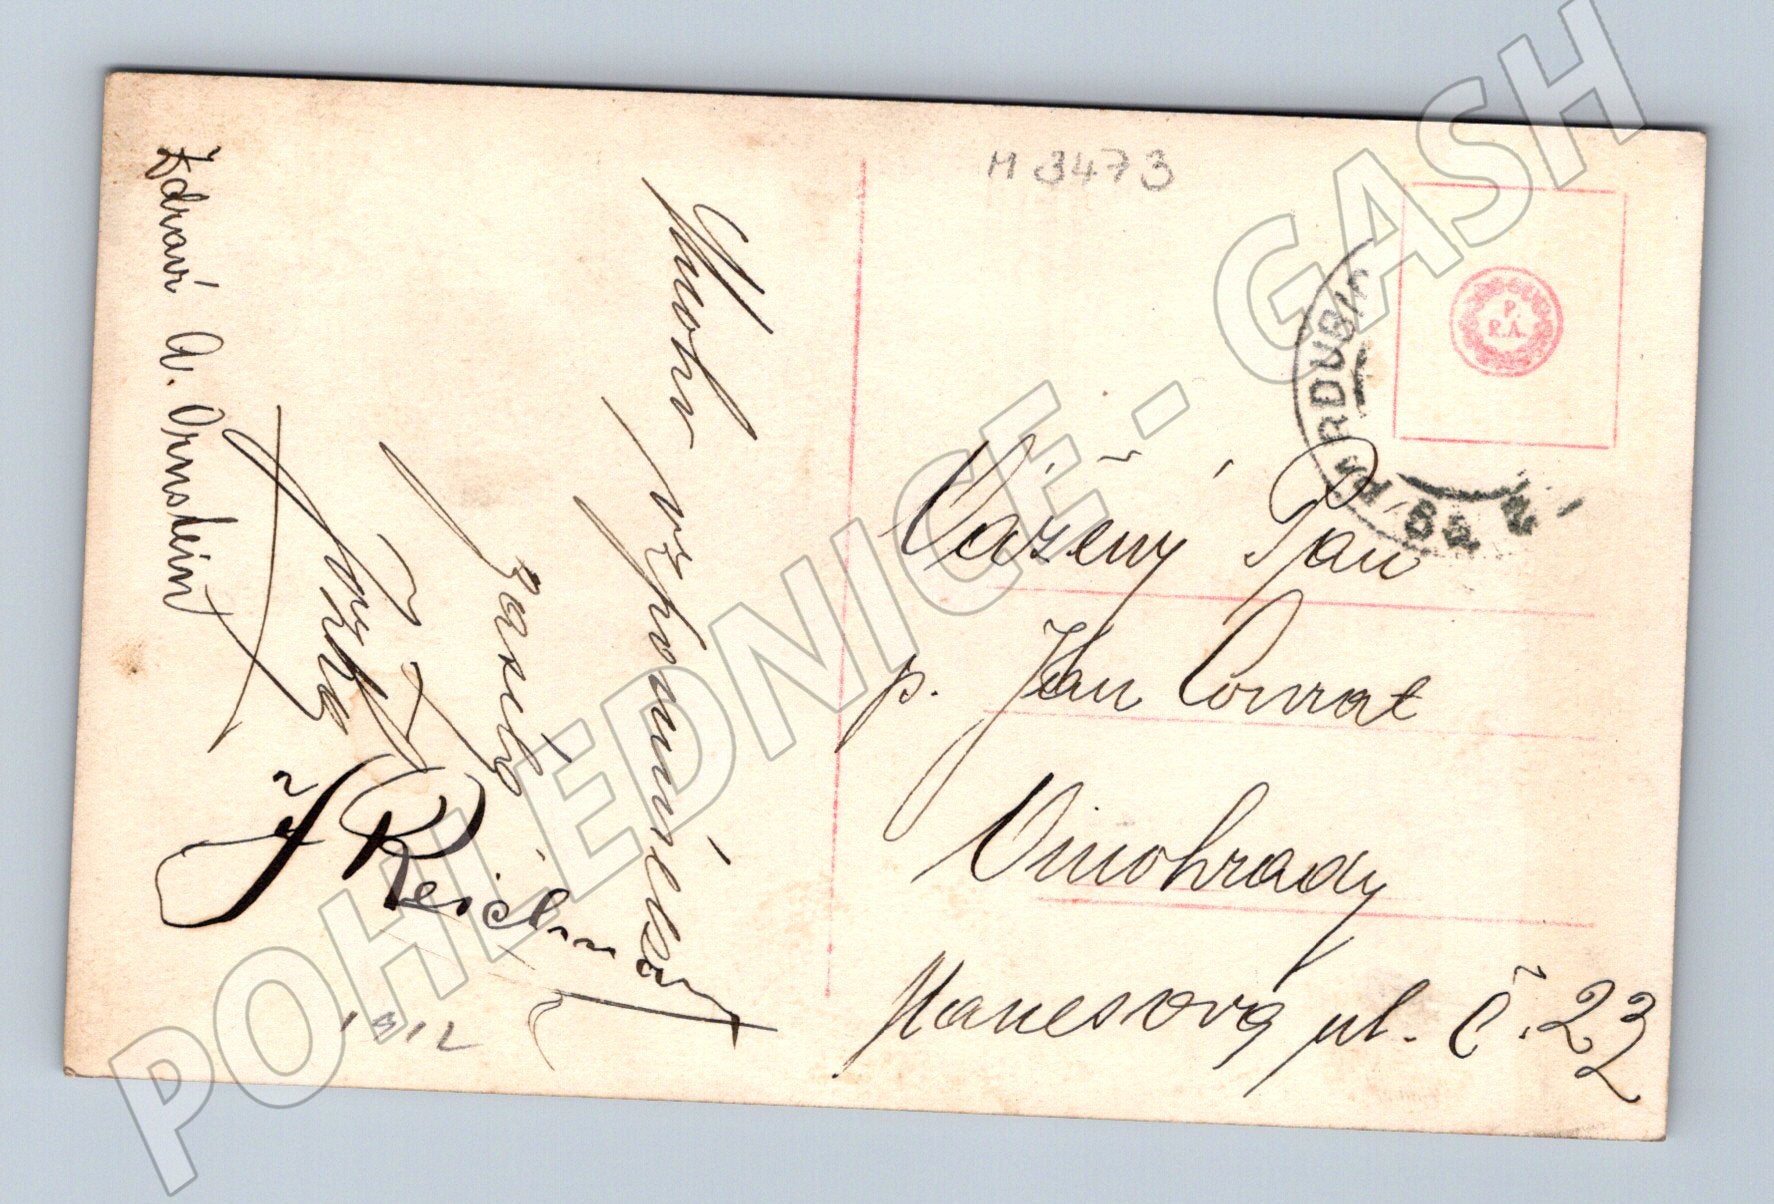 M 3473
P.
P.A.
PARDUBI
Vážený Pan
p. Jan Conrat
Vinohrady
Manesova ul. č. 23
Mnoho
vzpomínek
zasílá
J. Reichman
Zdraví A. Ornstein
1912
POHLEDNICE - GASH